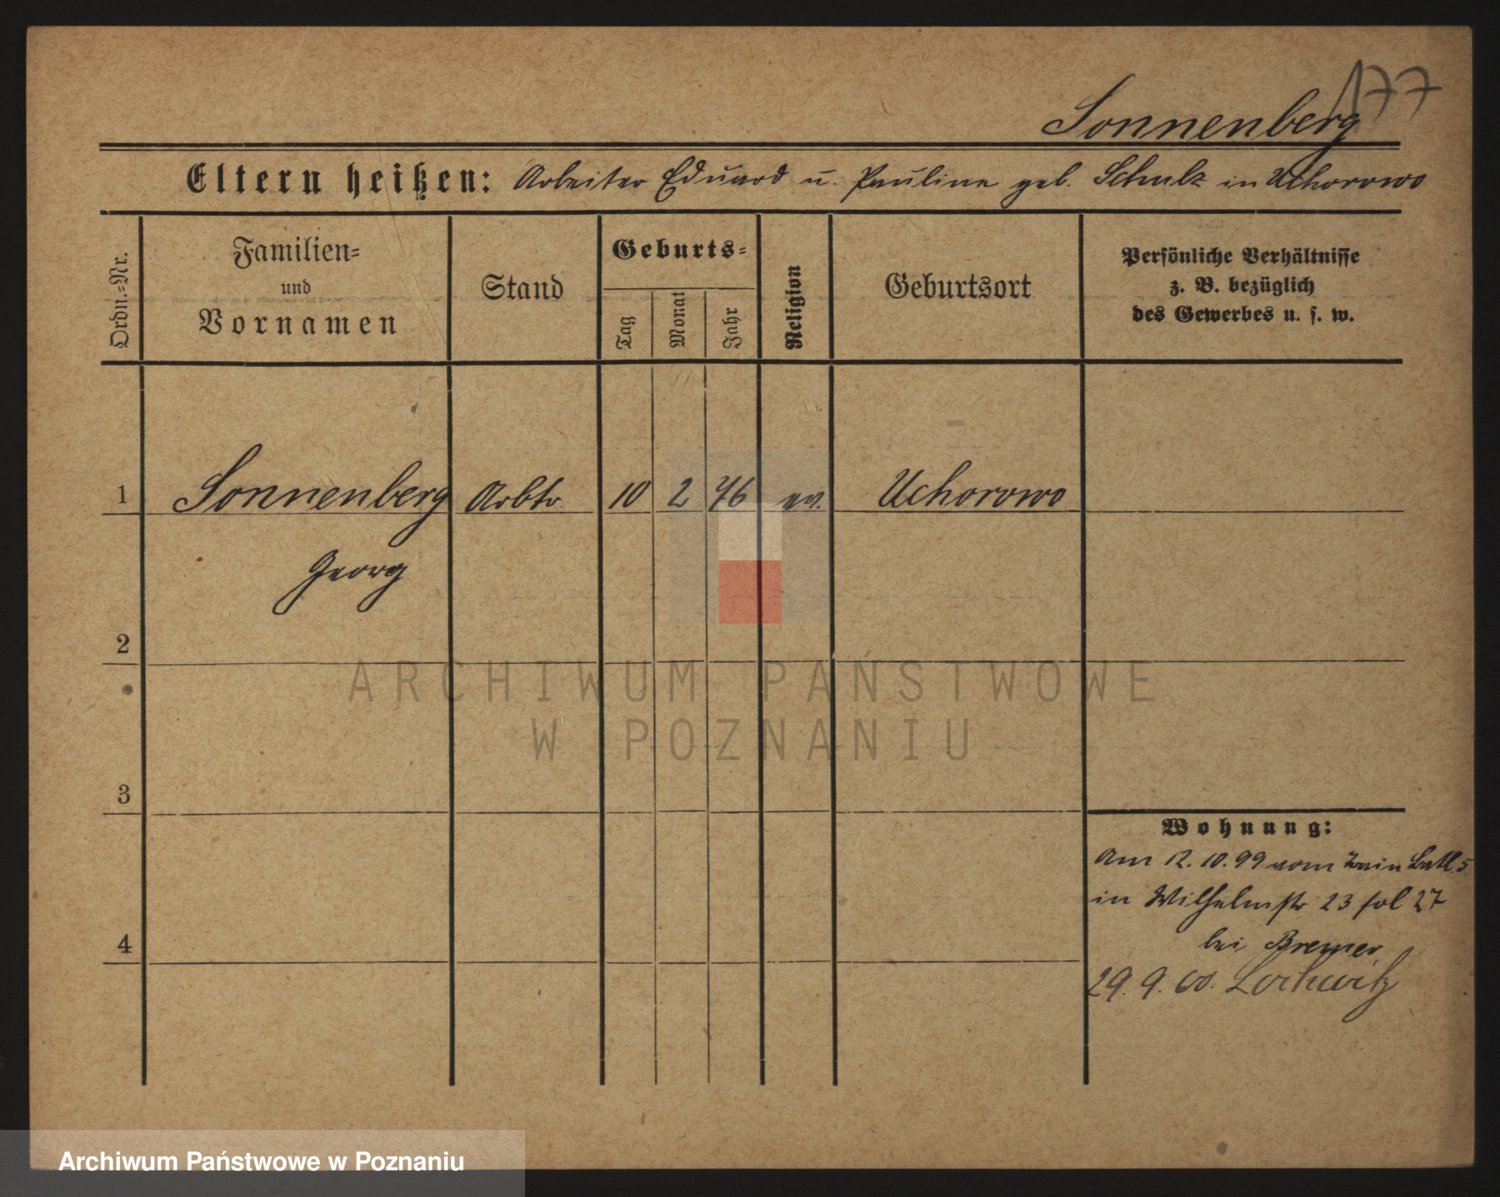 177
Sonnenberg
Eltern heißen: Arbeiter Eduard u. Pauline geb. Schulz in Uchorowo
Ordn.-Nr.
Familien-
und
Vornamen
Stand
Geburts-
Tag
Monat
Jahr
Religion
Geburtsort
Persönliche Verhältnisse
z. B. bezüglich
des Gewerbes u. s. w.
1 Sonnenberg Arbtr. 10 2 76 ev. Uchorowo
Georg
2
ARCHIWUM PAŃSTWOWE
W POZNANIU
3
Wohnung:
Am 12.10.99 vom Train Batl. 5
in Wilhelmstr 23 fol 27
4
bei Bremer
29. 9. 00.
Archiwum Państwowe w Poznaniu